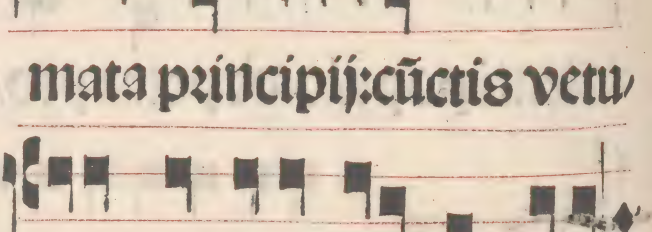 mata principij:cūctis vetu/